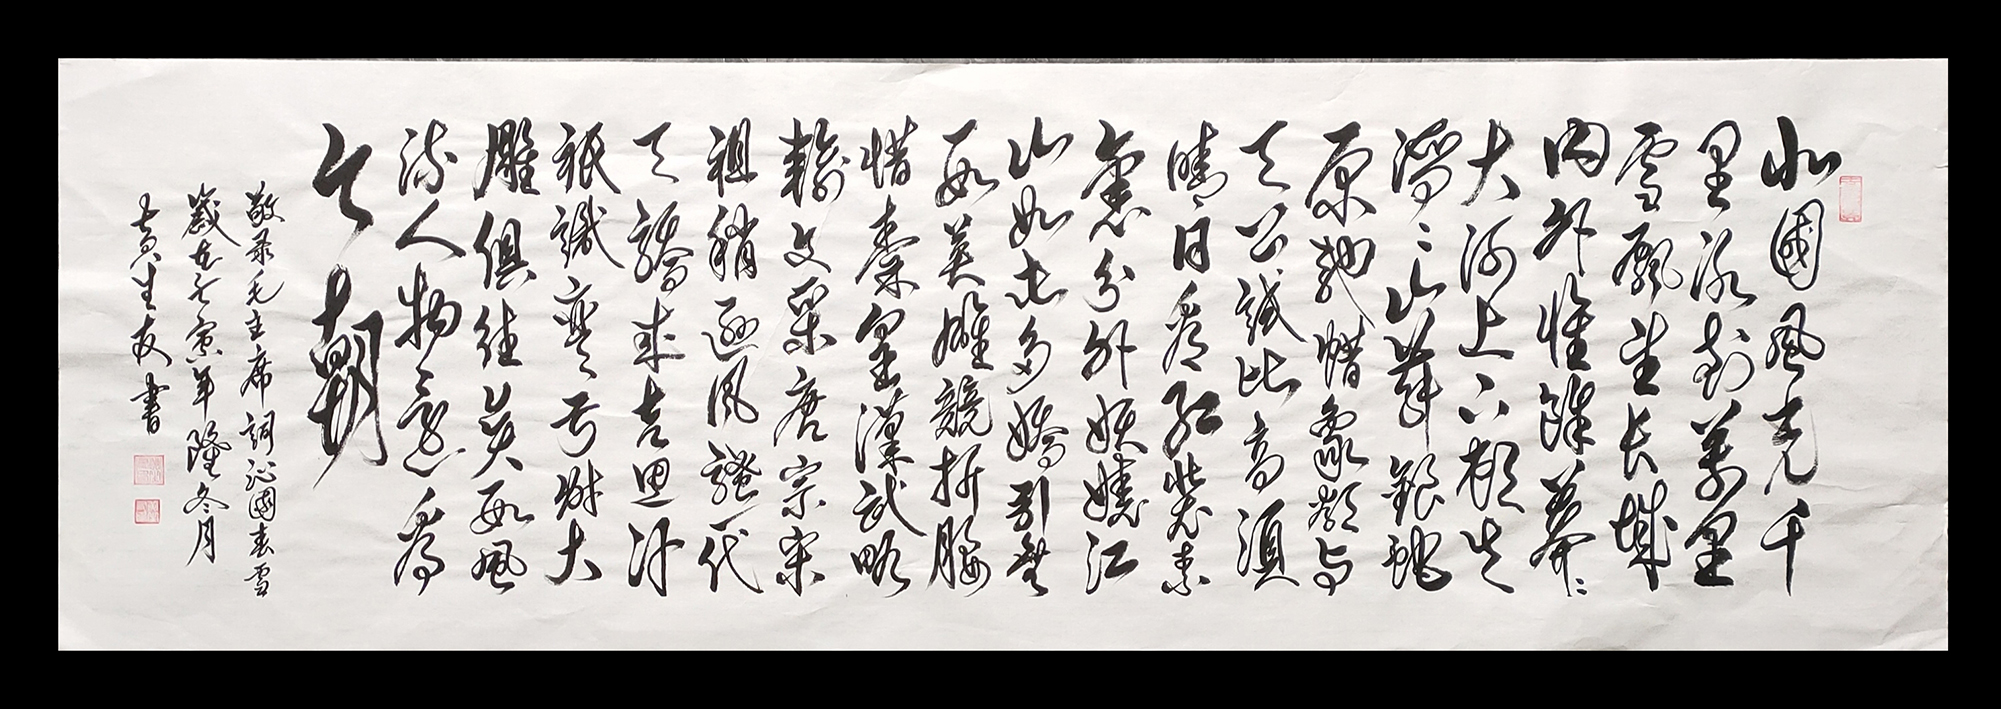 北國風光千
里冰封萬里
雪飄望長城
內外惟餘莽〻
大河上下頓失
滔〻山舞銀蛇
原馳蠟象欲與
天公試比高須
晴日看紅裝素
裹分外妖嬈江
山如此多嬌引無
數英雄競折腰
惜秦皇漢武略
輸文采唐宗宋
祖稍遜風騷一代
天驕成吉思汗
祇識彎弓射大
雕俱往矣數風
流人物還看
今朝
敬录毛主席詞沁園春雪
歲在壬寅年隆冬月
黄生友書